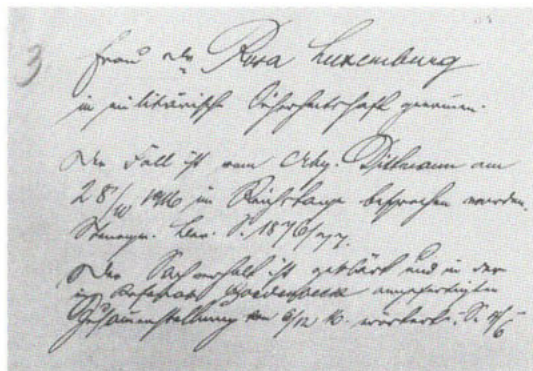 3 Frau Dr. Rosa Luxemburg
in militärische Sicherheitshaft genommen.
Der Fall ist vom Abg. Dittmann am
28/10 1916 im Reichstage besprochen worden.
Stenogr. Ber. S. 1876/77.
Der Sachverhalt ist geklärt und in der
angefertigten
Zusammenstellung vom 6/12 16. S.